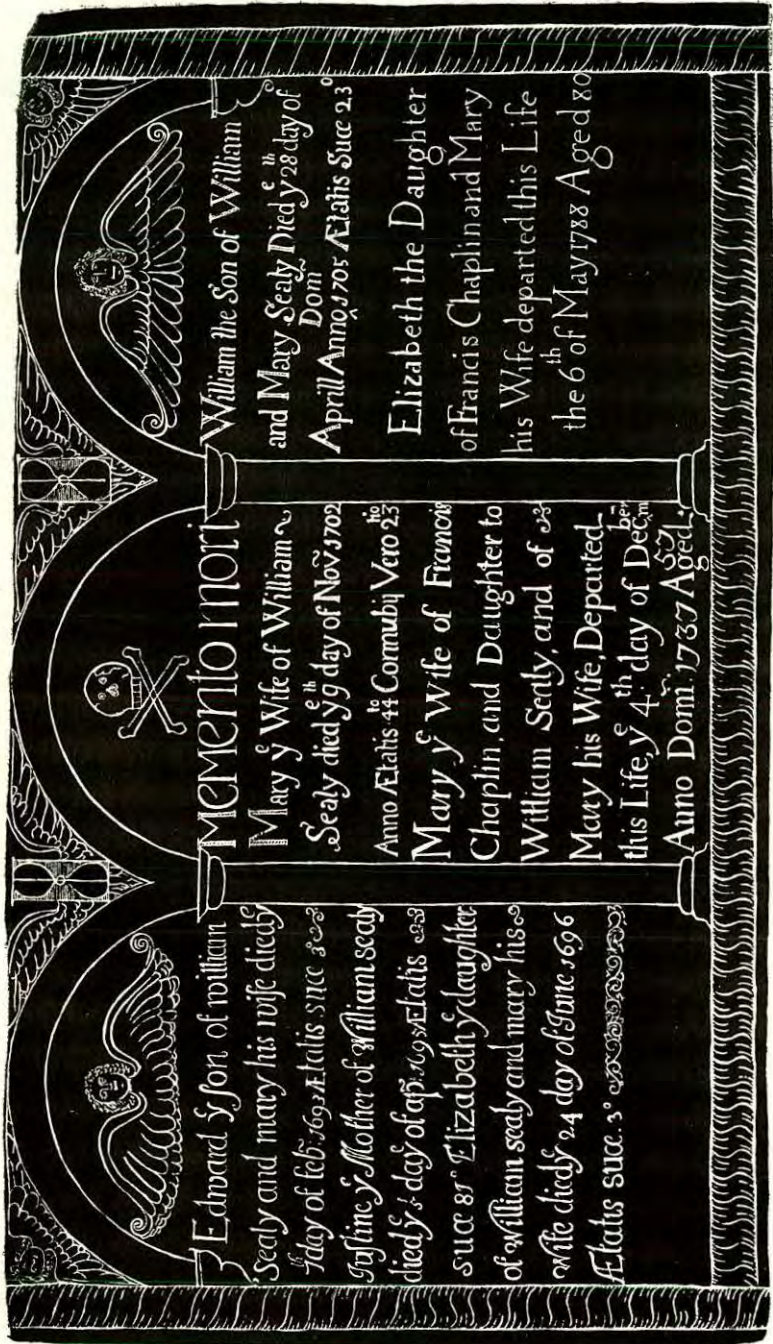 Edward yͤ son of william
Sealy and mary his wife died yͤ
7 day of febͬ 1692 Ætatis suæ 3
Justine yͤ Mother of William sealy
died yͤ day of ap. 1695 Ætatis
suæ 81 Elizabeth yͤ daughter
of william sealy and mary his
wife died yͤ 24 day of June 1696
Ætatis suæ 3°
Memento mori
Mary yͤ Wife of William
Sealy died yͤ 9th day of Nov 1702
Anno Ætatis 44to Connubij Vero 23tio
Mary yͤ Wife of Francis
Chaplin, and Daughter to
William Sealy, and of
Mary his Wife, Departed
this Life, yͤ 4th day of Decmber
Anno Domⁿⁱ 1737 Aged
William the Son of William
and Mary Sealy Died yͤ 28th day of
Aprill Anno Dom 1705 Ætatis Suæ 23°
Elizabeth the Daughter
of Francis Chaplin and Mary
his Wife departed this Life
the 6th of May 1788 Aged 80